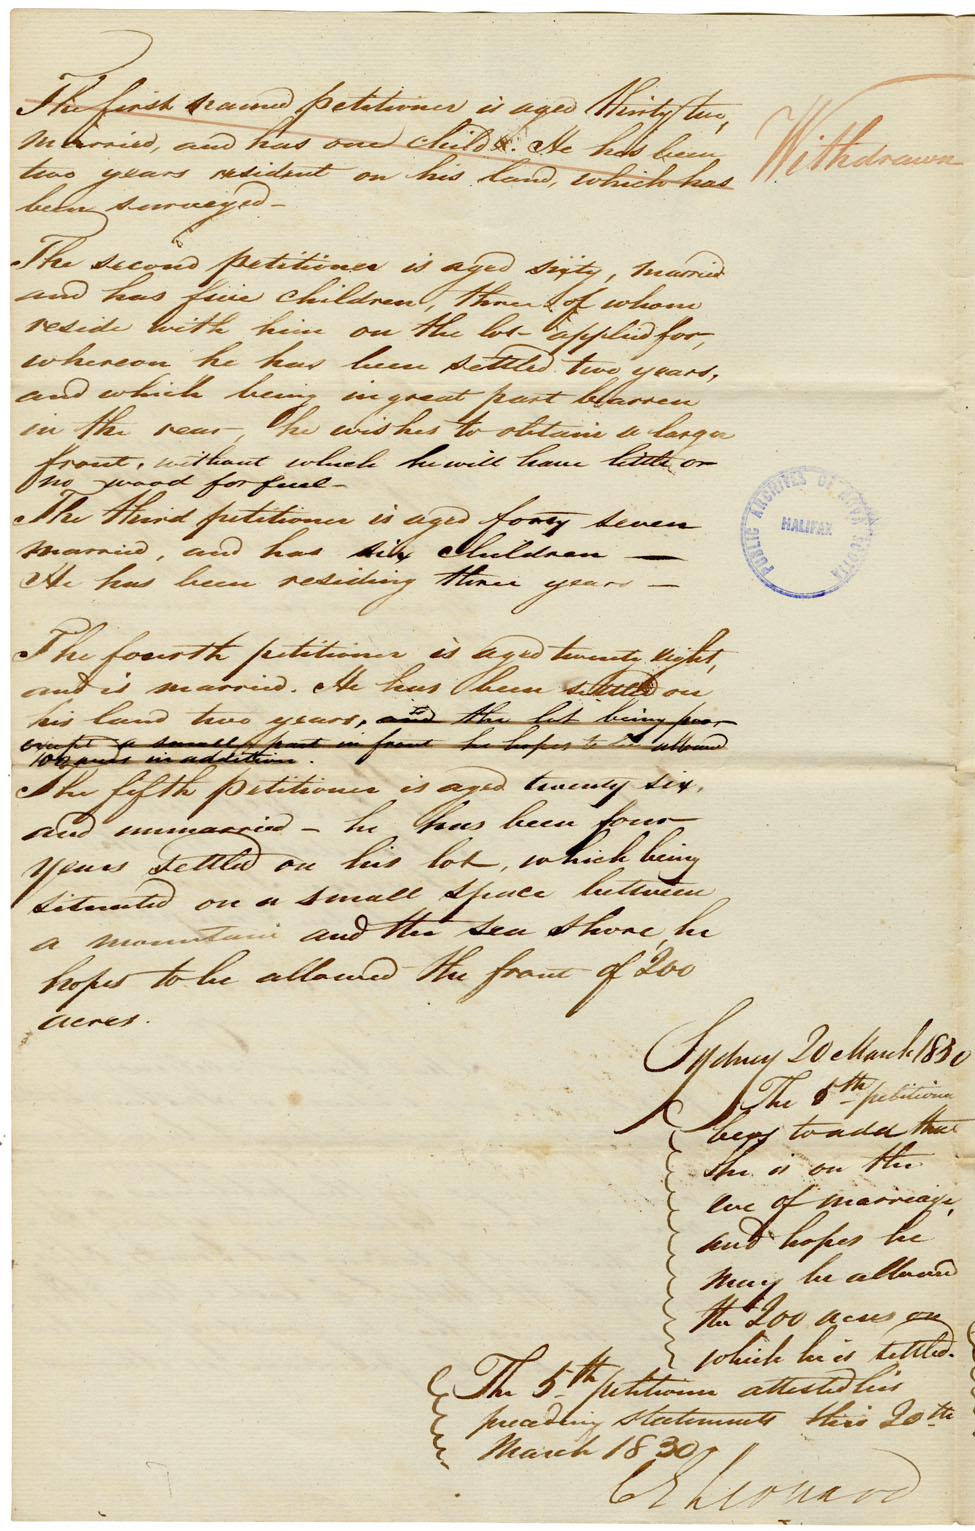 The first named petitioner is aged thirty two,
married, and has one child. He has been
two years resident on his land, which has
been surveyed –
Withdrawn
The second petitioner is aged sixty, married
and has five children, three of whom
reside with him on the lot applied for,
whereon he has been settled two years,
and which being in great part barren
in the rear, he wishes to obtain a larger
front, without which he will have little or
no wood for fuel –
PUBLIC ARCHIVES OF NOVA SCOTIA
HALIFAX
The third petitioner is aged forty seven
married, and has six children —
He has been residing three years –
The fourth petitioner is aged twenty eight,
and is married. He has been settled on
his land two years, and the lot being poor
except a small part in front he hopes to be allowed
in addition.
The fifth petitioner is aged twenty six,
and unmarried – he has been four
years settled on his lot, which being
situated on a small space between
a mountain and the sea shore, he
hopes to be allowed the front of 200
acres.
Sydney 20 March 1830
The 5th petitioner
begs to add that
he is on the
eve of marriage,
and hopes he
may be allowed
the 200 acres on
which he is settled.
The 5th petitioner attested his
preceding statements this 20th
March 1830
C E Leonard